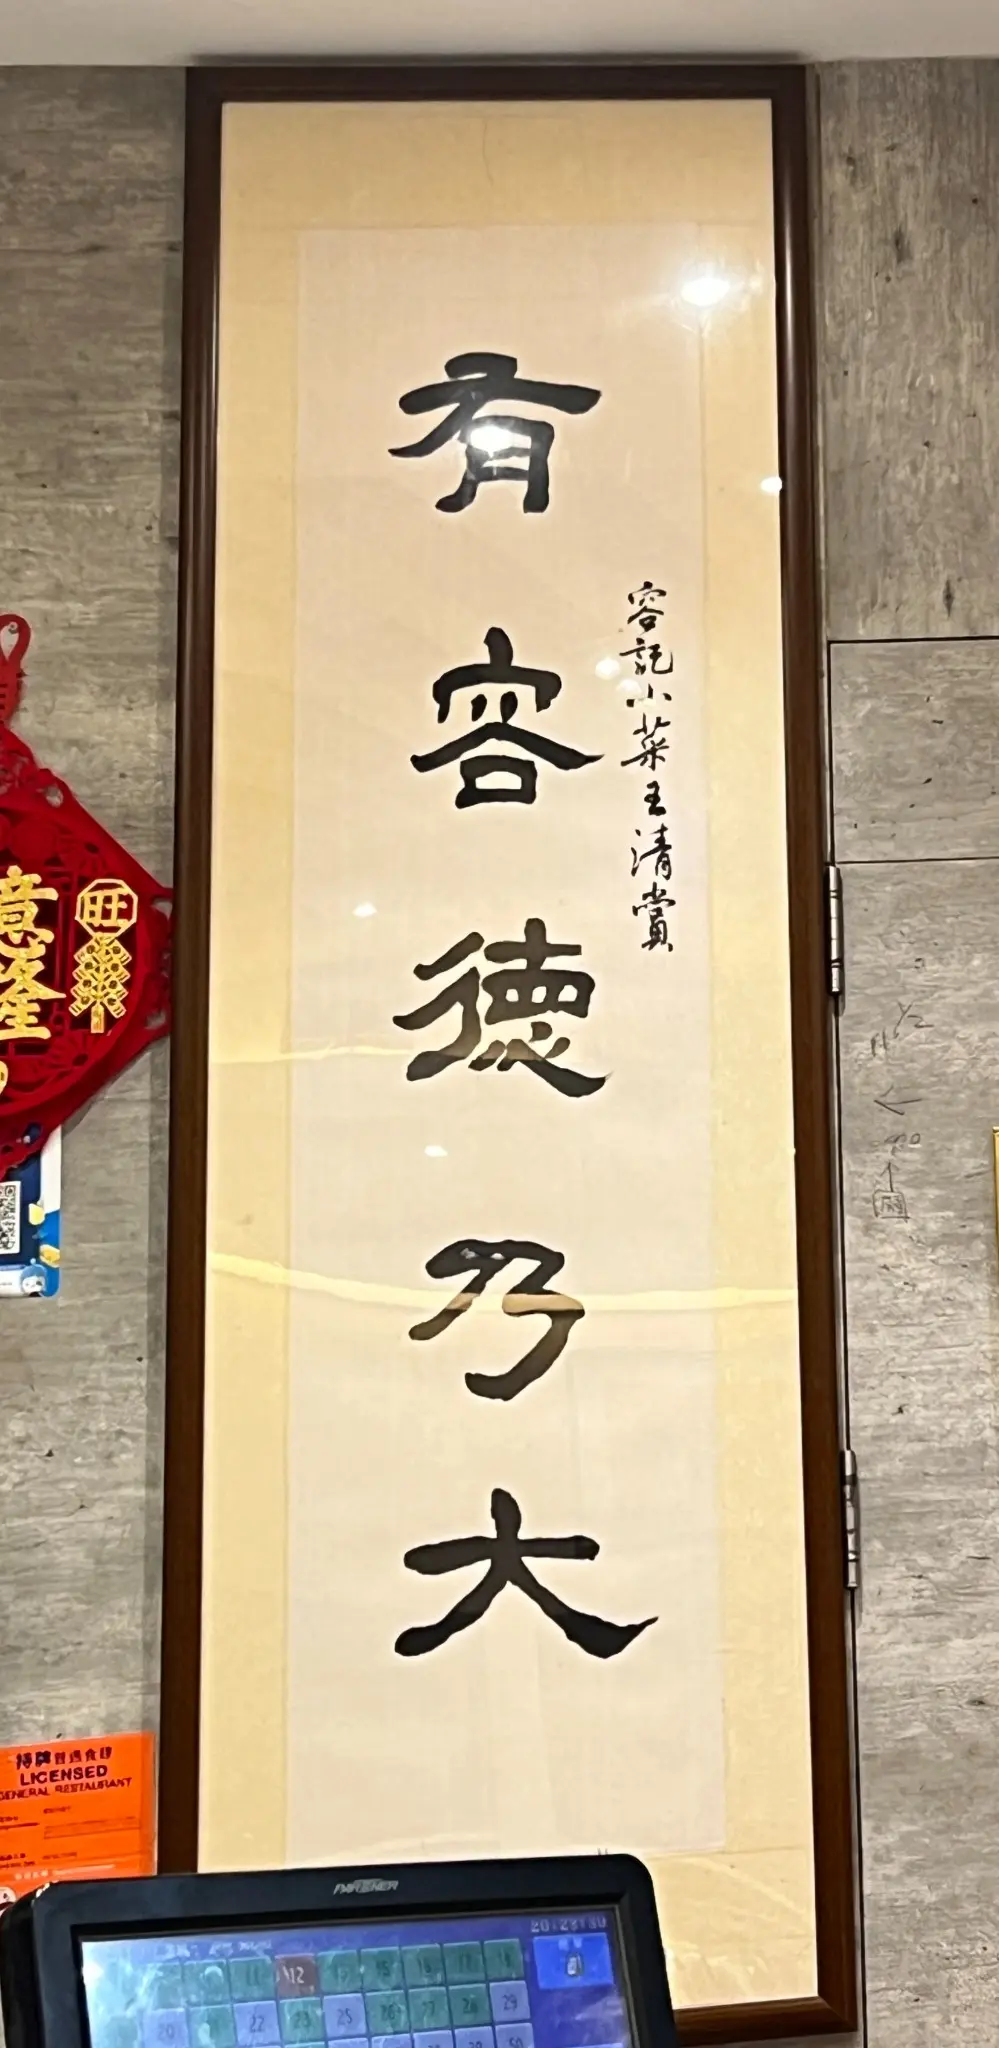 有容德乃大
容記小菜王清賞
意隆
旺
持牌普通食肆
LICENSED
GENERAL RESTAURANT
PARTNER
12
22
25
29